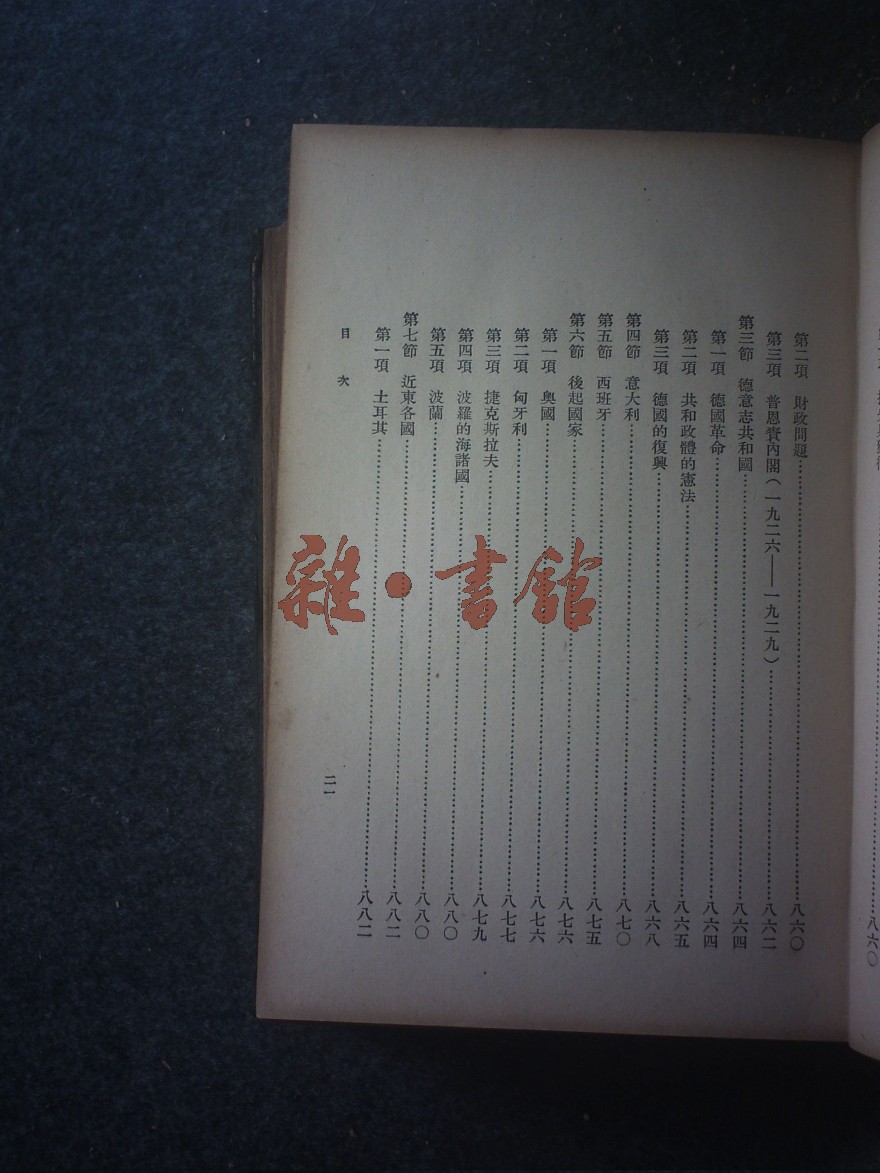 八六〇
第二項 財政問題 八六〇
第三項 普恩賚內閣（一九二六——一九二九） 八六二
第三節 德意志共和國 八六四
第一項 德國革命 八六四
第二項 共和政體的憲法 八六五
第三項 德國的復興 八六八
第四節 意大利 八七〇
第五節 西班牙 八七五
第六節 後起國家 八七六
第一項 奧國 八七六
第二項 匈牙利 八七七
第三項 捷克斯拉夫 八七九
第四項 波羅的海諸國 八八〇
第五項 波蘭 八八〇
第七節 近東各國 八八二
第一項 土耳其 八八二
目次 二一
雜·書館